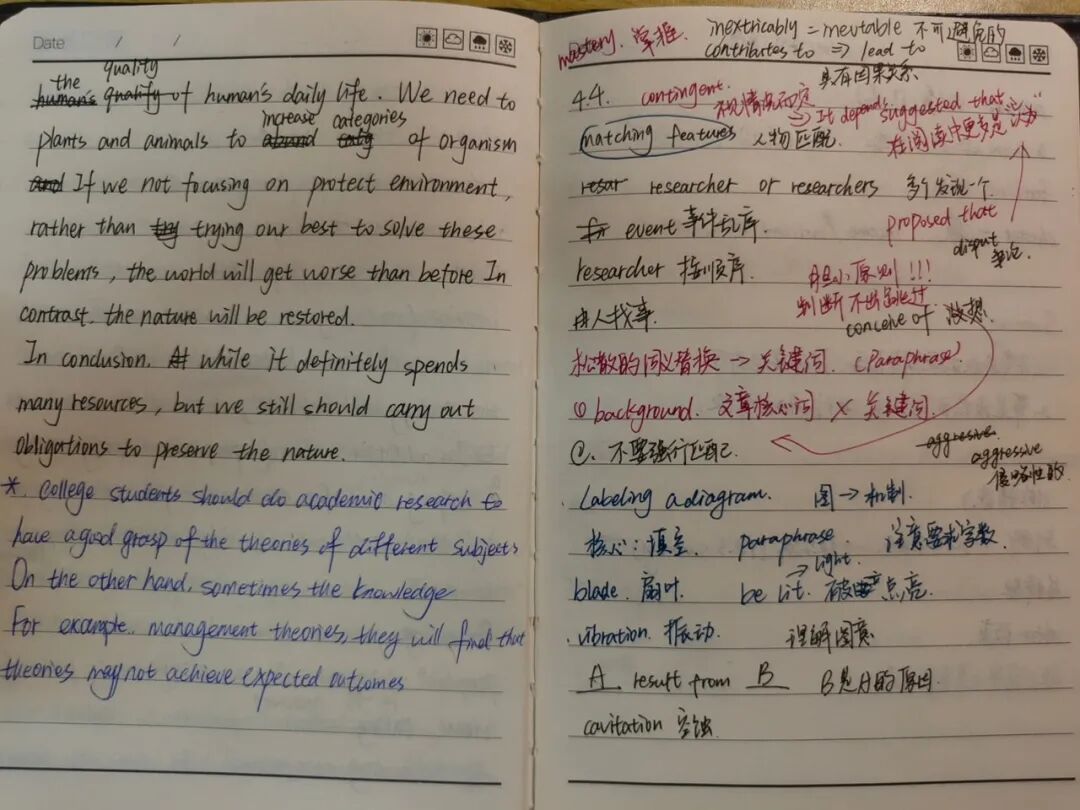 Date / /
the quality
human's quality of human's daily life. We need to
increase categories
plants and animals to abund catg of organism
and If we not focusing on protect environment,
rather than try trying our best to solve these
problems, the world will get worse than before In
contrast, the nature will be restored.
In conclusion. At while it definitely spends
many resources, but we still should carry out
obligations to preserve the nature.
*. College students should do academic research to
have a good grasp of the theories of different subjects
On the other hand, sometimes the knowledge
For example. management theories, they will find that
theories may not achieve expected outcomes
mastery. 掌握 inextricably = inevtable 不可避免的
contributes to => lead to
具有因果关系
4.4. contingent. 视情况而定
=> It depends suggested that
matching features 人物匹配. 在阅读中更多是"认为"
resar researcher or researchers 多个发现一个
event 事件乱序. proposed that
disput 争论.
researcher 按顺序. 胆小原则!!!
判断不出跳过
由人找事. conceive of 设想.
松散的同义替换 → 关键词. (Paraphrase)
① background. 文章核心词 × 关键词.
②. 不要强行匹配. aggresive.
aggressive
侵略性的.
. Labeling a diagram. 图 → 机制.
核心: 填空. paraphrase. 注意要求字数.
→ light.
blade. 扇叶. be lit. 被点亮.
. vibration. 振动. 理解图意
A result from B B是A的原因.
cavitation 空蚀.